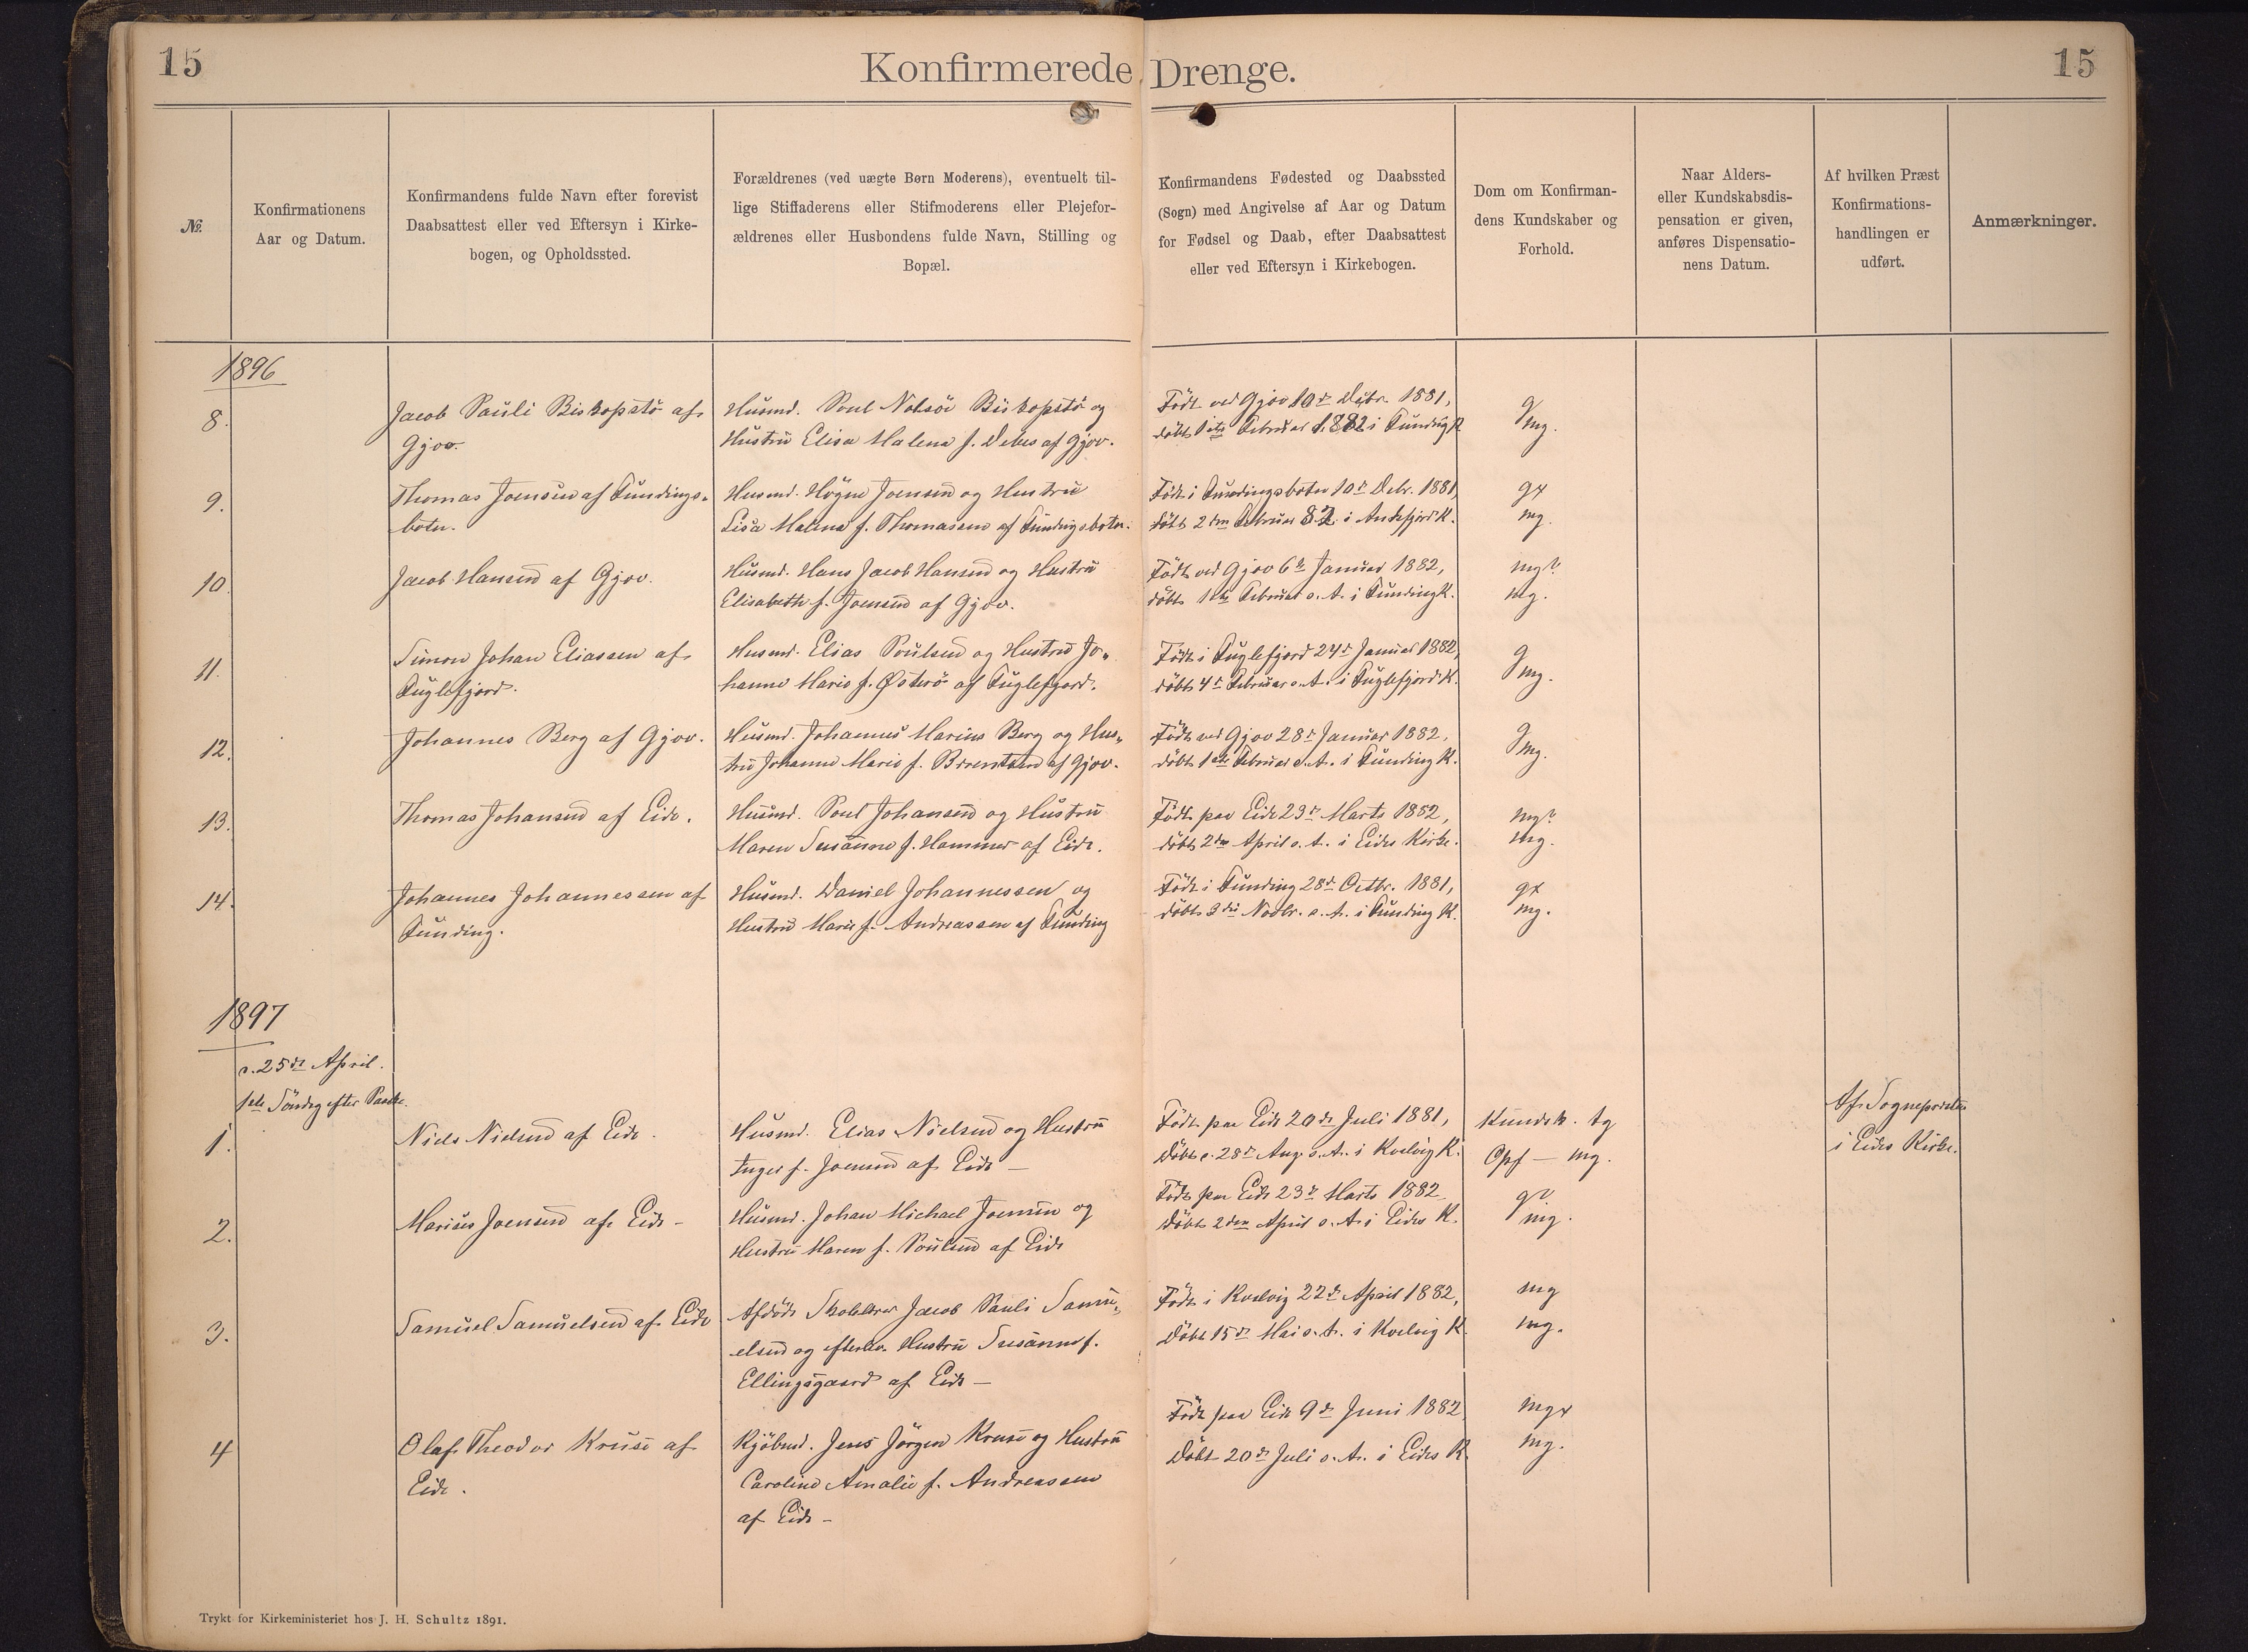 15
Konfirmerede Drenge.
15
№.
Konfirmationens
Aar og Datum.
Konfirmandens fulde Navn efter forevist
Daabsattest eller ved Eftersyn i Kirke-
bogen, og Opholdssted.
Forældrenes (ved uægte Børn Moderens), eventuelt til-
lige Stiffaderens eller Stifmoderens eller Plejefor-
ældrenes eller Husbondens fulde Navn, Stilling og
Bopæl.
Konfirmandens Fødested og Daabssted
(Sogn) med Angivelse af Aar og Datum
for Fødsel og Daab, efter Daabsattest
eller ved Eftersyn i Kirkebogen.
Dom om Konfirman-
dens Kundskaber og
Forhold.
Naar Alders-
eller Kundskabsdis-
pensation er given,
anføres Dispensatio-
nens Datum.
Af hvilken Præst
Konfirmations-
handlingen er
udført.
Anmærkninger.
1896
8.
Jacob Pauli Biskopstö af
Gjov.
Husmd. Poul Nolsöe Biskopstö og
Hustru Elisa Malena f. Debes af Gjov.
Födt ved Gjov 10de Decbr. 1881,
döbt 1ste Februar 1882 i Funding K
g
mg.
9.
Thomas Joensen af Fundings-
botn.
Husmd. Högne Joensen og Hustru
Lisa Malena f. Thomasen af Fundingsbotn.
Födt i Fundingsbotn 10de Decbr. 1881,
döbt 2den Februar 82 i Andefjord K.
gx
mg.
10.
Jacob Hansen af Gjov.
Husmd. Hans Jacob Hansen og Hustru
Elisabeth f. Joensen af Gjov.
Födt ved Gjov 6te Januar 1882,
döbt 1ste Februar s. A. i Funding K.
mg?
mg.
11.
Simon Johan Eliassen af
Fuglefjord.
Husmd. Elias Poulsen og Hustru Jo-
hanne Marie f. Østerö af Fuglefjord.
Födt i Fuglefjord 24de Januar 1882,
döbt 4de Februar s. A. i Fuglefjord K.
g
mg.
12.
Johannes Berg af Gjov.
Husmd. Johannes Marius Berg og Hus-
tru Johanne Marie f. Berentsen af Gjov.
Födt ved Gjov 28de Januar 1882,
döbt 1ste Februar s. A. i Funding K.
g
mg.
13.
Thomas Johansen af Eide.
Husmd. Poul Johansen og Hustru
Maren Susanne f. Hammer af Eide.
Födt paa Eide 23de Marts 1882,
döbt 2den April s. A. i Eides Kirke.
mg?
mg.
14.
Johannes Johannessen af
Funding.
Husmd. Daniel Johannessen og
Hustru Marie f. Andreassen af Funding
Födt i Funding 28de Octbr. 1881,
döbt 3die Novbr. s. A. i Funding K.
gx
mg.
1897
d. 25de April.
1ste Söndag efter Paaske.
1.
Niels Nielsen af Eide.
Husmd. Elias Nielsen og Hustru
Inger f. Joensen af Eide —
Födt paa Eide 20de Juli 1881,
Döbt d. 28de Aug. s. A. i Kvalvig K.
Kundsk. tg
Opf — mg.
Af Sognepræsten
i Eides Kirke.
2.
Marius Joensen af Eide —
Husmd. Johan Michael Joensen og
Hustru Maren f. Poulsen af Eide
Födt paa Eide 23de Marts 1882
Döbt 2den April s. A. i Eides K.
g?
mg.
3.
Samuel Samuelsen af Eide
Afdöde Skolelærer Jacob Pauli Samu-
elsen og efterlev. Hustru Susanne f.
Ellingsgaard af Eide —
Födt i Kvalvig 22de April 1882,
Döbt 15de Mai s. A. i Kvalvig K.
mg
mg.
4
Olaf Theodor Kruse af
Eide.
Kjöbmd. Jens Jörgen Kruse og Hustru
Caroline Amalie f. Andreassen
af Eide —
Födt paa Eide 9de Juni 1882
Döbt 20de Juli s. A. i Eides K.
mgx
mg.
Trykt for Kirkeministeriet hos J. H. Schultz 1891.